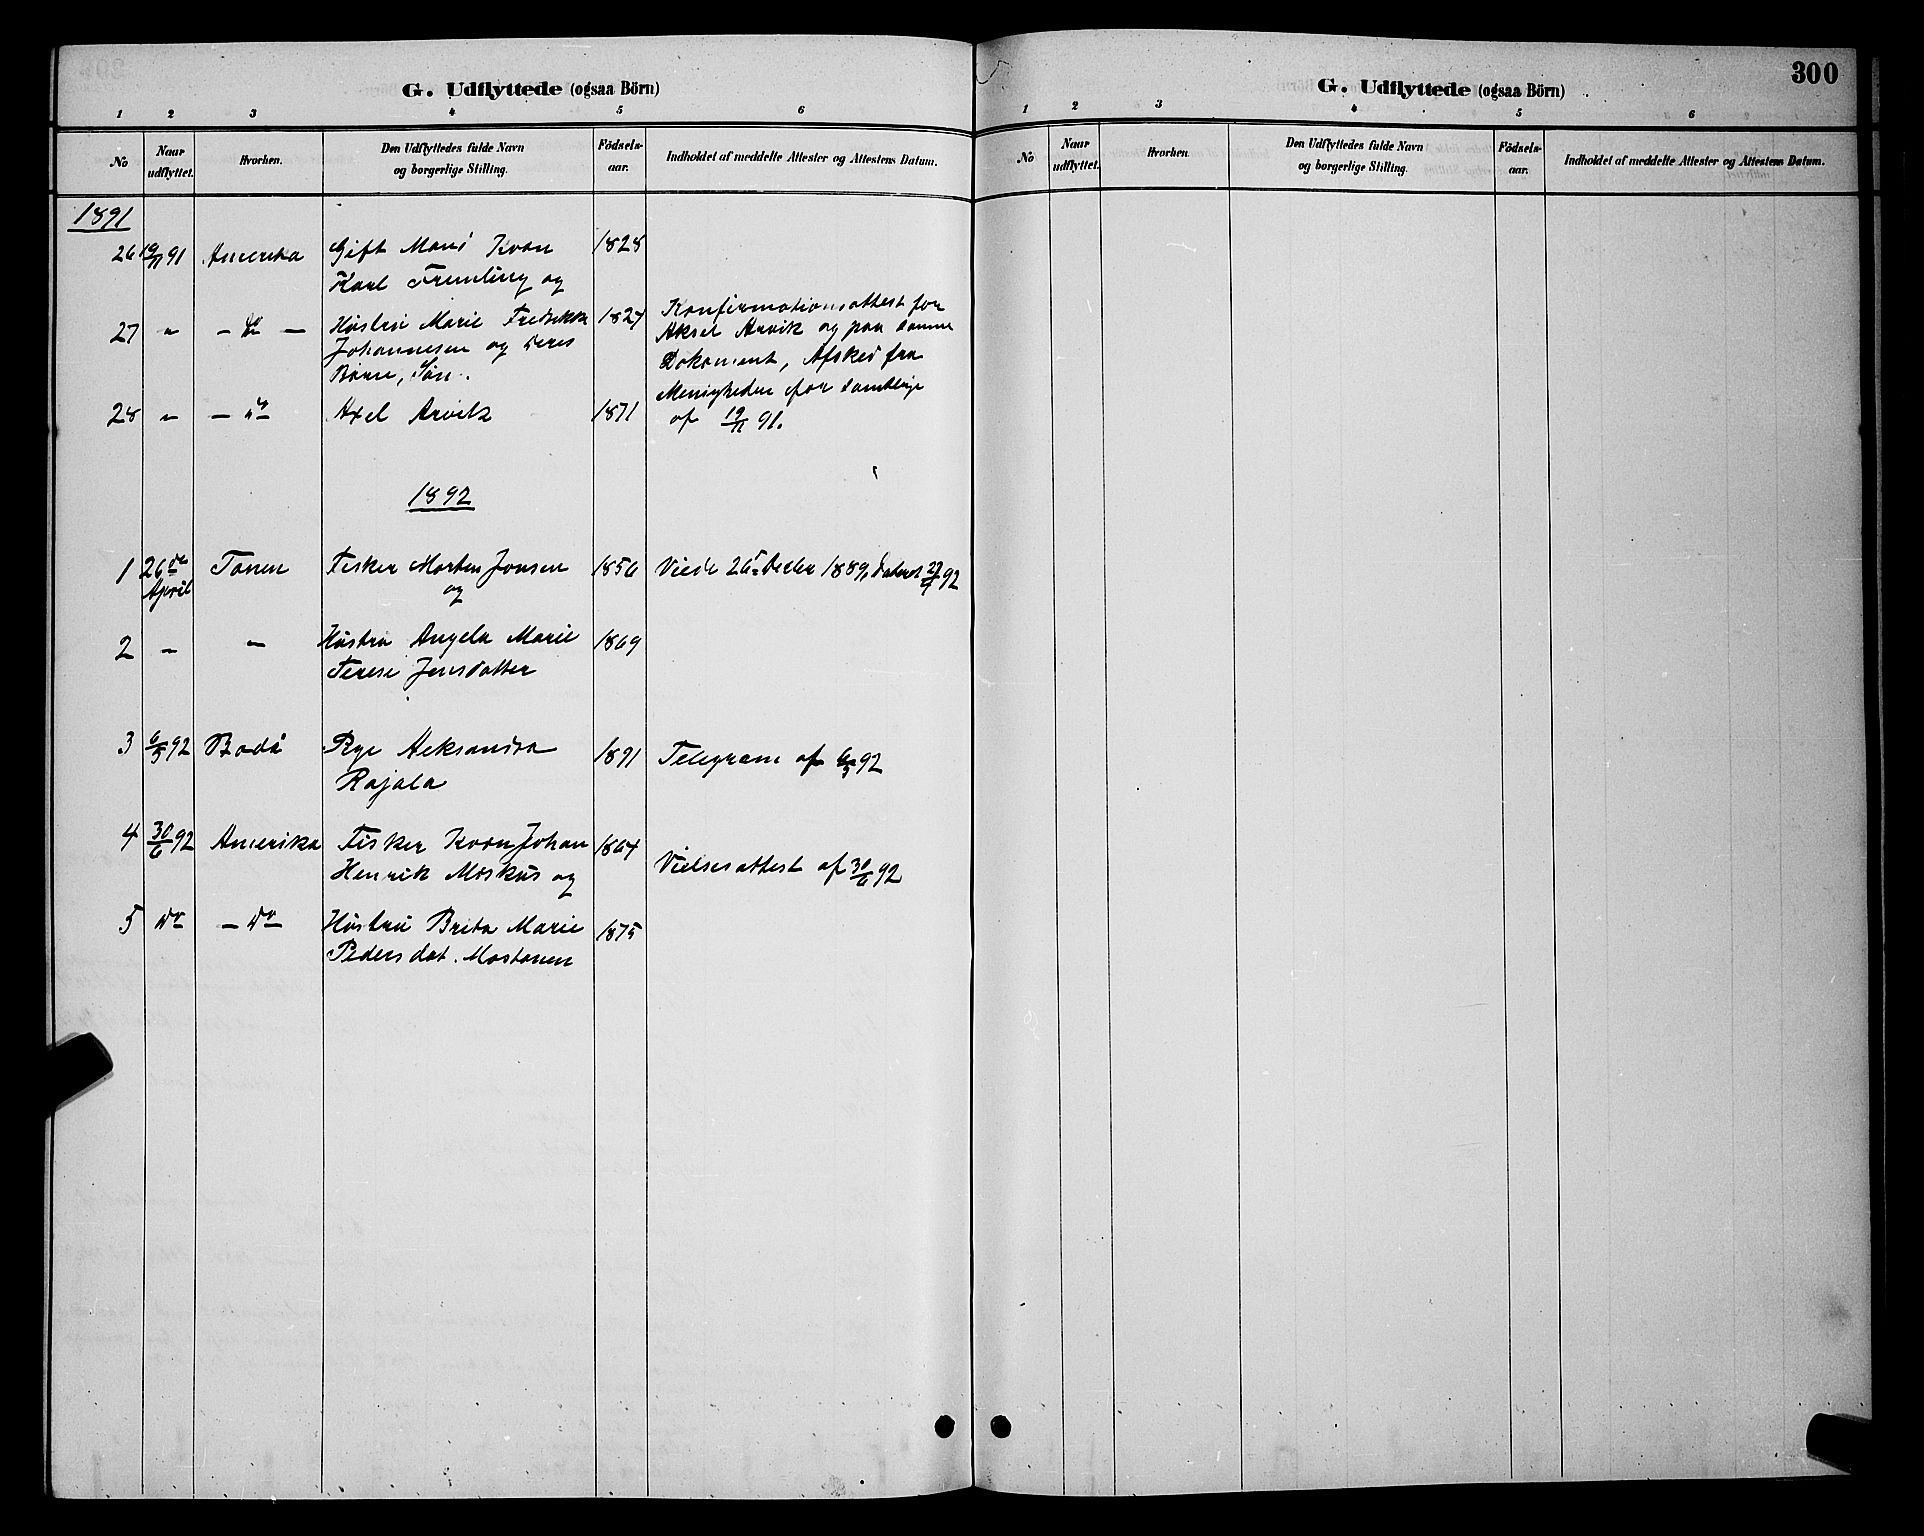 300
G. Udflyttede (ogsaa Börn)
1 2 3 4 5 6
No
Naar udflyttet.
Hvorhen.
Den Udflyttedes fulde Navn
og borgerlige Stilling.
Födsels-
aar.
Indholdet af meddelte Attester og Attestens Datum.
1891
26 19/11 91 Amerika Gift Mand Kvæn 1828
Karl Fremling og
27 " — do — Hustru Marie Fredrikke 1827
Johannesen og deres
Börn, Sön.
Konfirmationsattest for
Aksel Arvik og paa samme
Dokument, Afsked fra
Menigheden for samtlige
af 19/11 91.
28 " — do Axel Arvik 1871
1892
1 26de Tanen Fisker Morten Jonsen 1856 Viede 26 Decbr 1889, dateret 27/4 92
April og
2 " " Hustru Angela Marie 1869
Terese Jensdatter
3 6/5 92 Bodö Pige Aleksandra 1891 Telegram af 6/5 92
Rajala
4 30/6 92 Amerika Fisker Kvæn Johan 1864
Henrik Moskus og Vielsesattest af 30/6 92
5 do — do Hustru Brita Marie 1875
Pedersdat. Mostanen
G. Udflyttede (ogsaa Börn)
1 2 3 4 5 6
No
Naar udflyttet.
Hvorhen.
Den Udflyttedes fulde Navn
og borgerlige Stilling.
Födsels-
aar.
Indholdet af meddelte Attester og Attestens Datum.